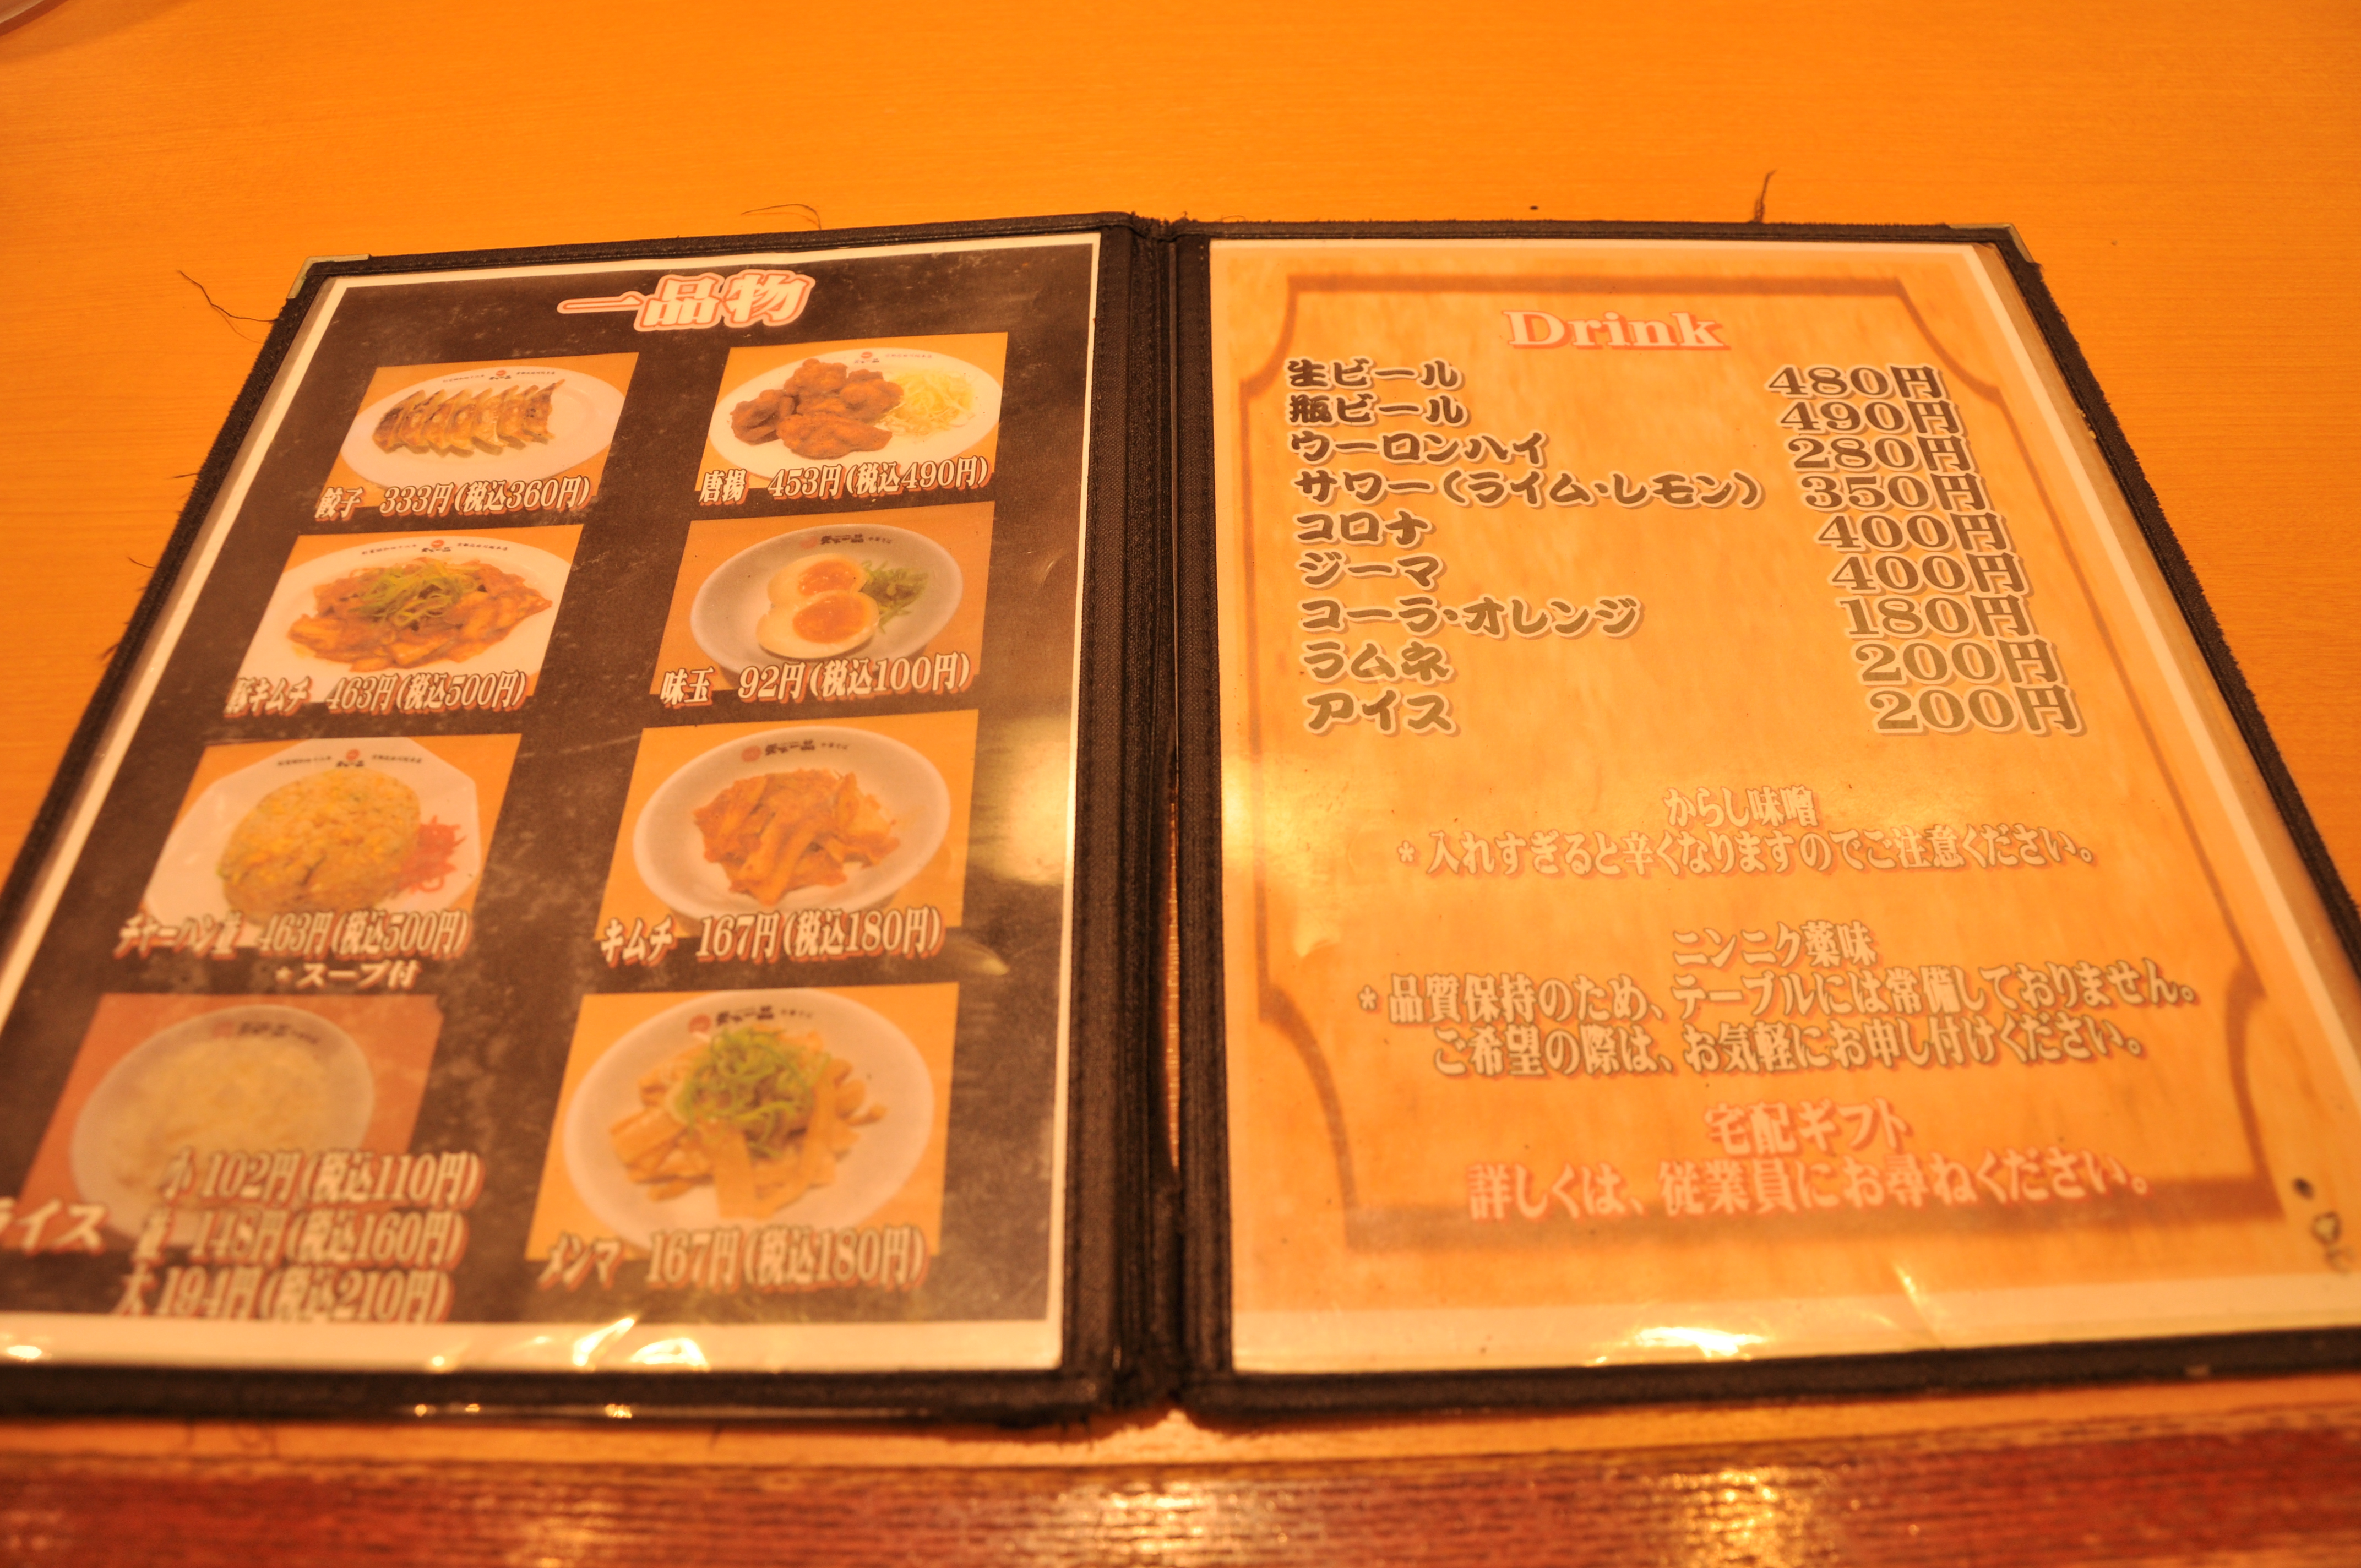 一品物
餃子 333円(税込360円)
唐揚 453円(税込490円)
豚キムチ 463円(税込500円)
味玉 92円(税込100円)
チャーハン並 463円(税込500円)
*スープ付
キムチ 167円(税込180円)
ライス
小 102円(税込110円)
並 148円(税込160円)
大 194円(税込210円)
メンマ 167円(税込180円)
Drink
生ビール 480円
瓶ビール 490円
ウーロンハイ 280円
サワー(ライム・レモン) 350円
コロナ 400円
ジーマ 400円
コーラ・オレンジ 180円
ラムネ 200円
アイス 200円
からし味噌
*入れすぎると辛くなりますのでご注意ください。
ニンニク薬味
*品質保持のため、テーブルには常備しておりません。
ご希望の際は、お気軽にお申し付けください。
宅配ギフト
詳しくは、従業員にお尋ねください。